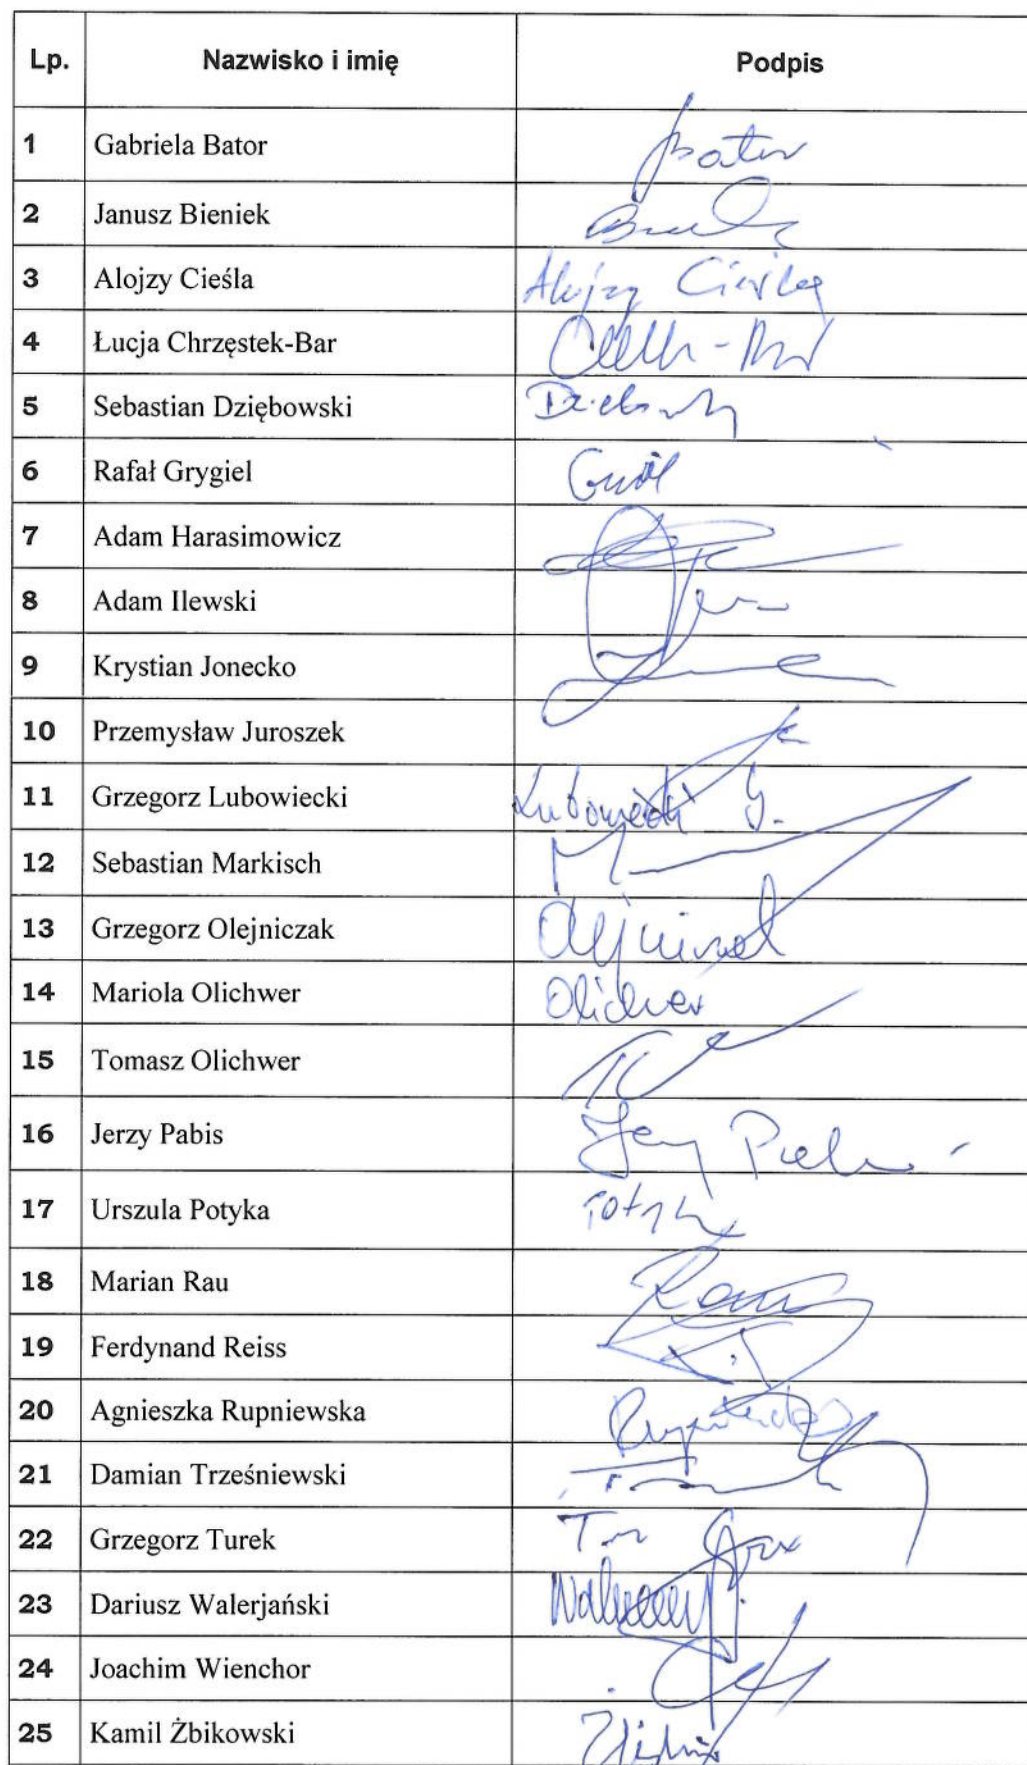 Lp. Nazwisko i imię Podpis
1 Gabriela Bator Bator
2 Janusz Bieniek
3 Alojzy Cieśla Alojzy Cieśla
4 Łucja Chrzęstek-Bar
5 Sebastian Dziębowski
6 Rafał Grygiel
7 Adam Harasimowicz
8 Adam Ilewski
9 Krystian Jonecko
10 Przemysław Juroszek
11 Grzegorz Lubowiecki Lubowiecki G.
12 Sebastian Markisch
13 Grzegorz Olejniczak Olejniczak
14 Mariola Olichwer Olichwer
15 Tomasz Olichwer
16 Jerzy Pabis
17 Urszula Potyka
18 Marian Rau Rau
19 Ferdynand Reiss
20 Agnieszka Rupniewska
21 Damian Trześniewski
22 Grzegorz Turek
23 Dariusz Walerjański
24 Joachim Wienchor
25 Kamil Żbikowski